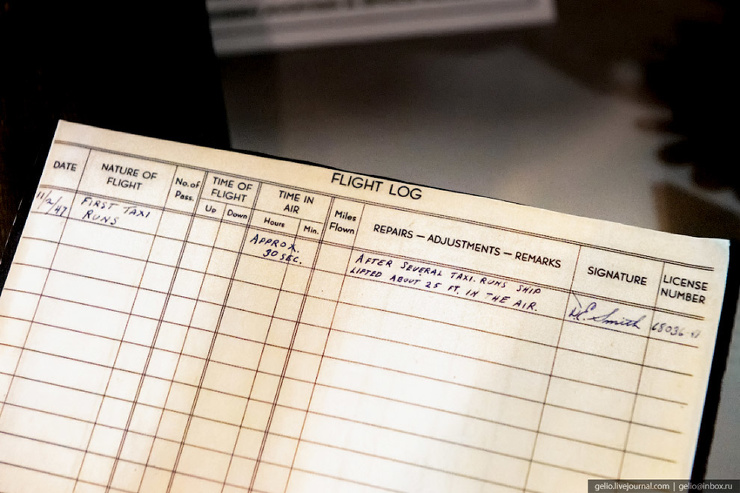 FLIGHT LOG
DATE
NATURE OF
FLIGHT
No. of
Pass.
TIME OF
FLIGHT
Up Down
TIME IN
AIR
Hours Min.
Miles
Flown
REPAIRS — ADJUSTMENTS — REMARKS
SIGNATURE
LICENSE
NUMBER
11/2/47
FIRST TAXI
RUNS
APPROX.
30 SEC.
AFTER SEVERAL TAXI RUNS SHIP
LIFTED ABOUT 25 FT. IN THE AIR.
M.E. Smith
68036-41
gelio.livejournal.com | gelio@inbox.ru